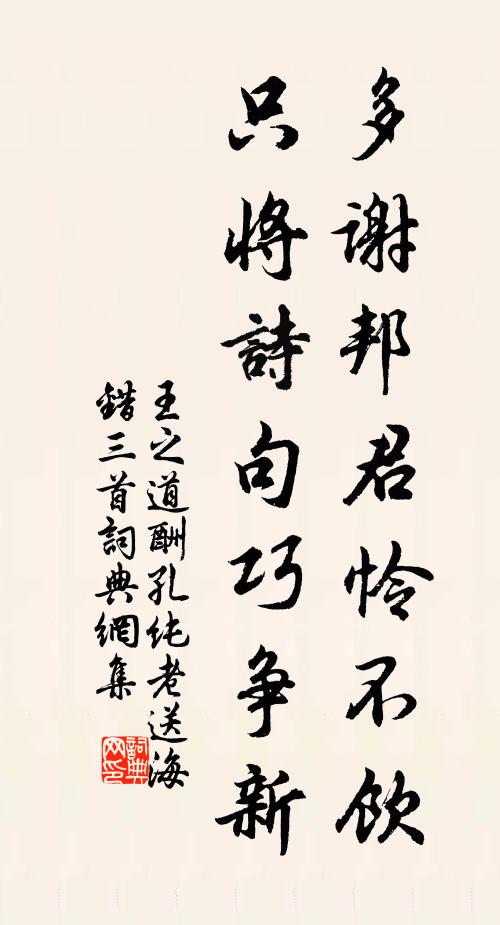 多谢邦君怜不饮
只將詩句巧争新
王之道酬孔纯老送海
錯三首詞典網集
詞典
网印